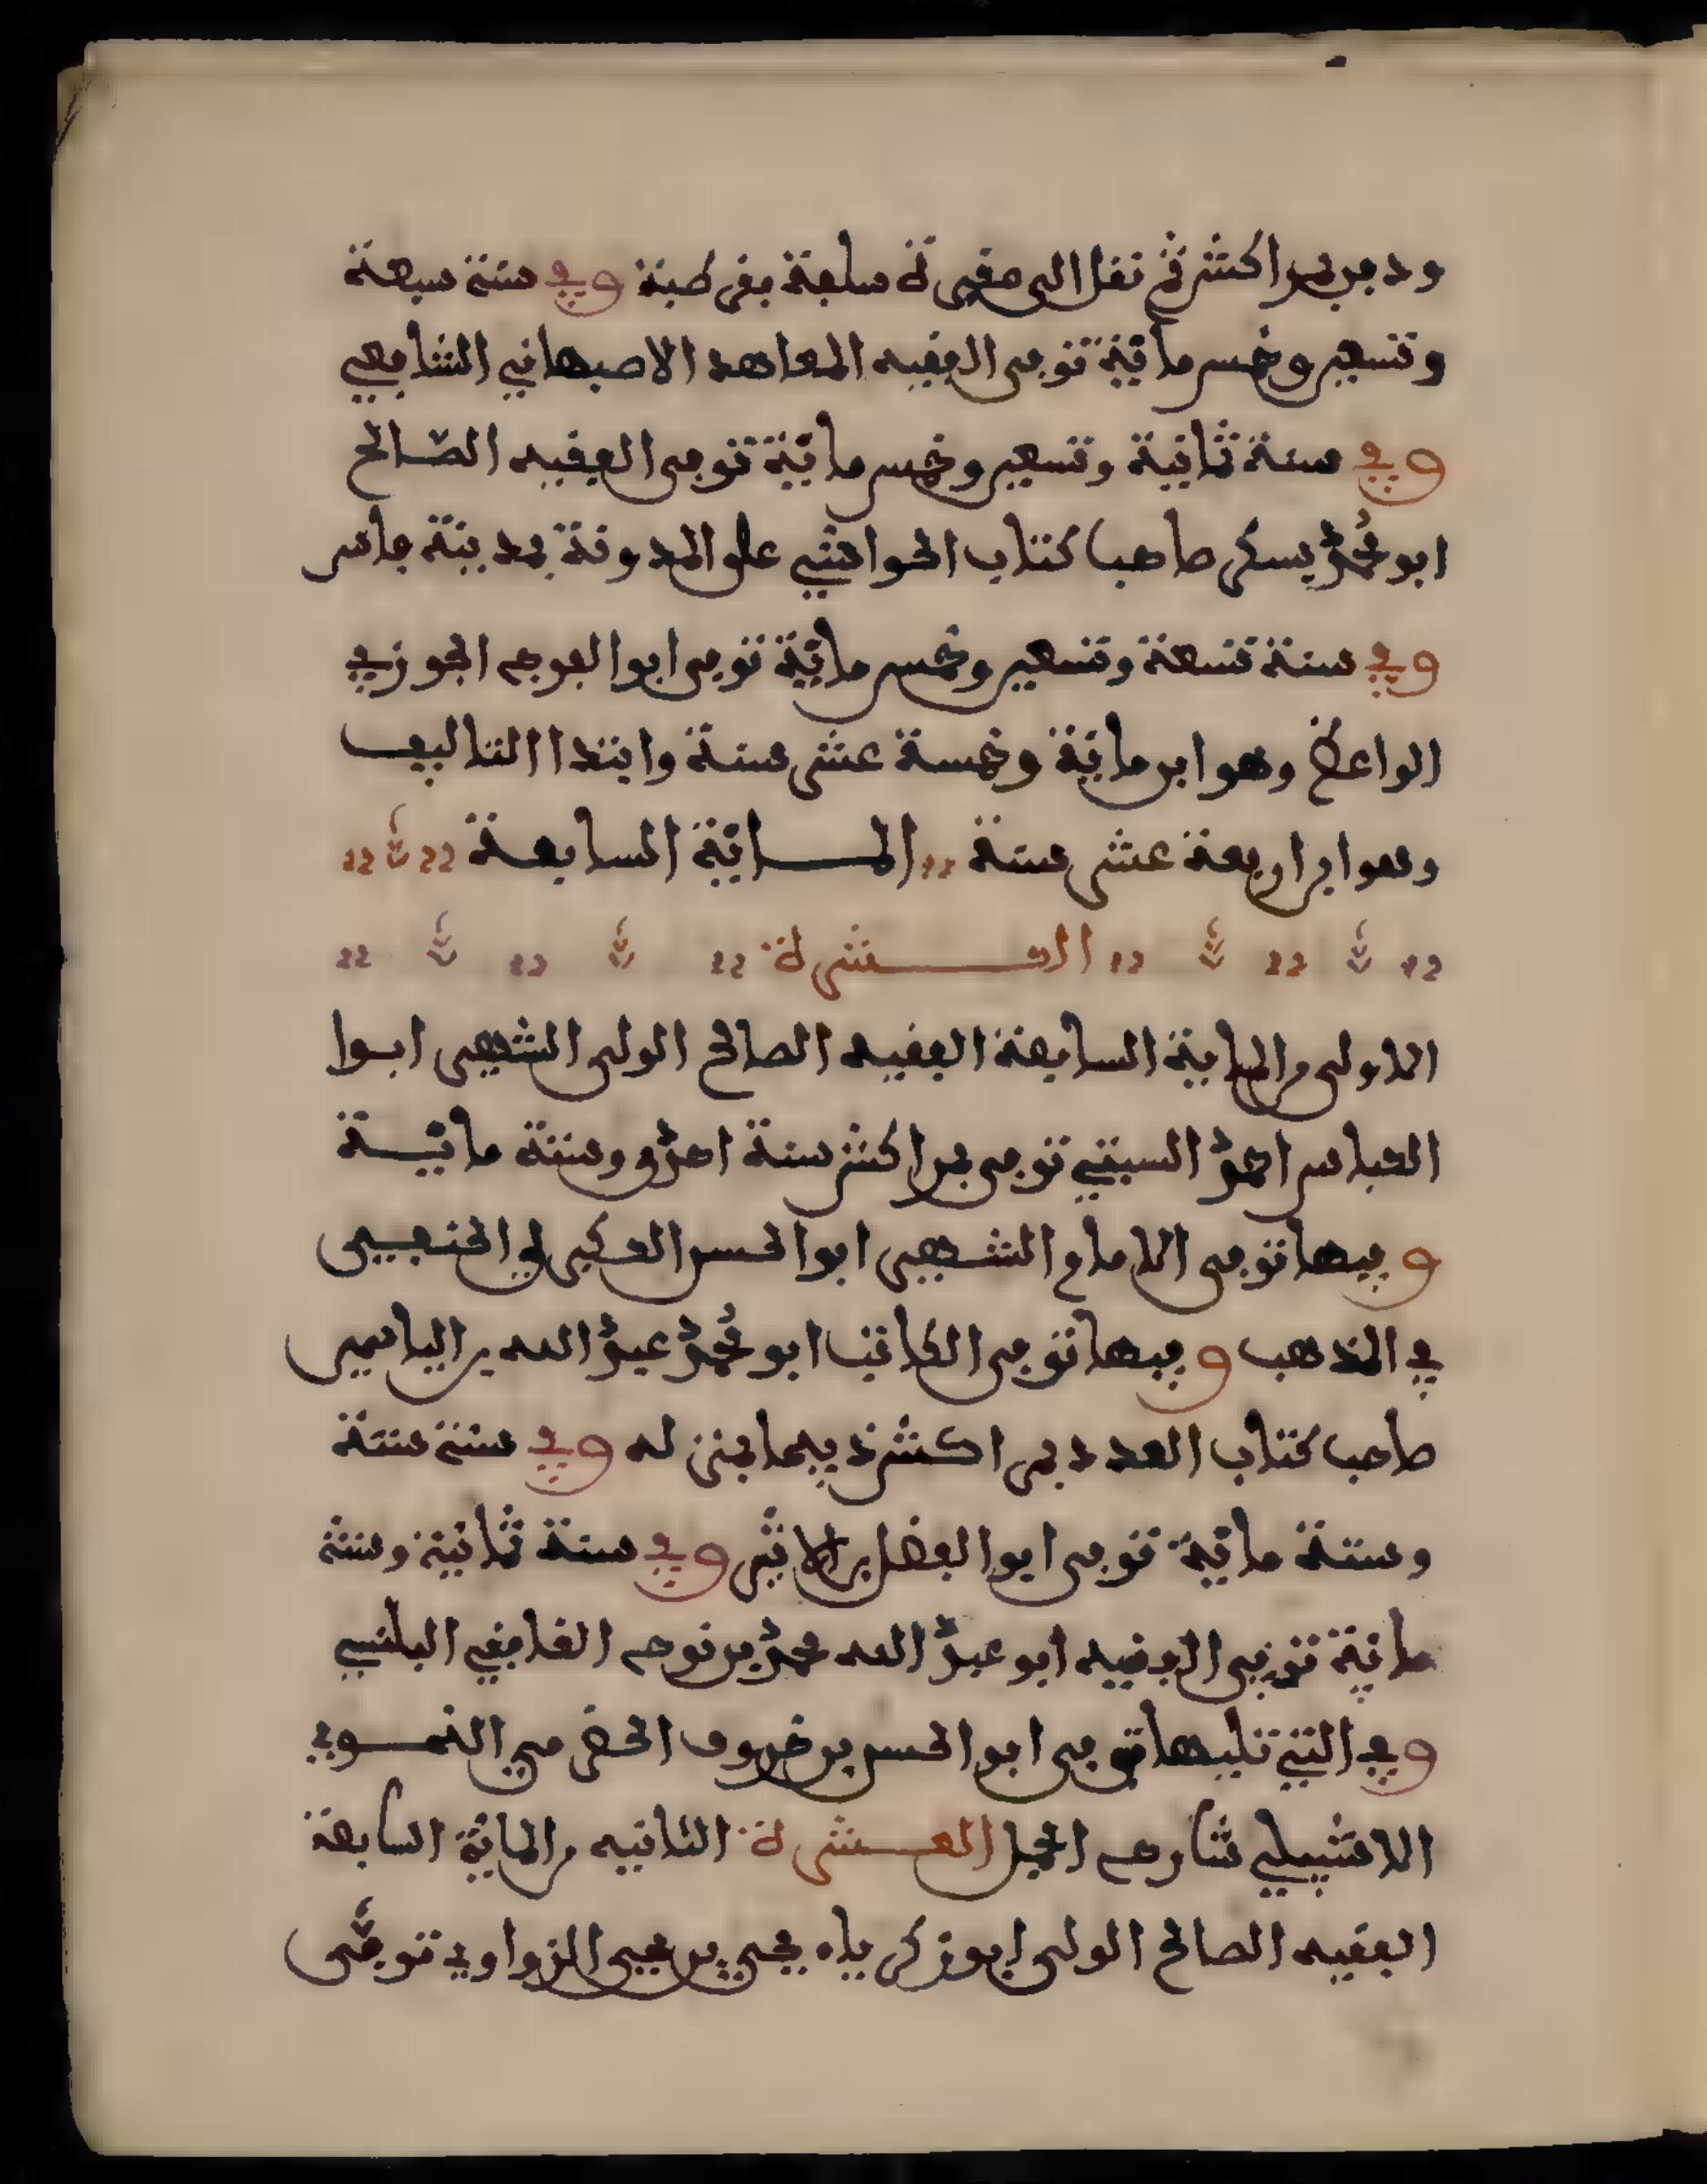 ودفن بمراكش ثم نقل الى مقبرة سلفه بقرطبة وفي سنة سبعة
وتسعين وخمس مائة توفى الفقيه المعاهد الاصبهاني الشافعي
وفي سنة ثمانية وتسعين وخمس مائة توفى الفقيه الصالح
ابو محمد يسكر صاحب كتاب الحواشي على المدونة بمدينة فاس
وفي سنة تسعة وتسعين وخمس مائة توفى ابوا الفرج الجوزي
الواعظ وهو ابن مائة وخمسة عشر سنة وابتدا التاليف
وهو ابن اربعة عشر سنة المائة السابعة
العشرة
الاولى من المائة السابعة الفقيه الصالح الولى الشهير ابوا
العباس احمد السبتي توفى بمراكش سنة احدى وستة مائة
وفيها توفى الامام الشهير ابوا الحسن العكبري الحنفي
في المذهب وفيها توفى الكاتب ابو محمد عبد الله بن الياسمين
صاحب كتاب العدد بمراكش ذبيحا بمنزله وفي سنة ستة
وستة مائة توفى ابوا الفضل بن الاثير وفي سنة ثمانية وستة
مائة توفى الفقيه ابو عبد الله محمد بن نوح الغافقي البلنسي
وفي التي تليها توفى ابوا الحسن بن خروف الحضرمي النحوي
الاشبيلي شارح الجمل العشرة الثانيه من المائة السابعة
الفقيه الصالح الولى ابو زكرياء يحيى بن يحيى الزواوي توفى